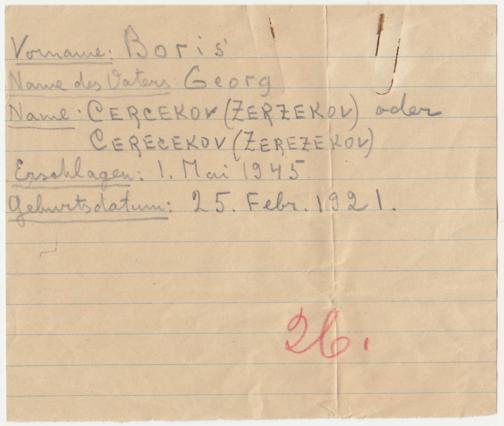 Vorname: Boris
Name des Vaters Georg
Name: CERCEKOV (ZERZEKOV) oder
CERECEKOV (ZEREZEKOV)
Erschlagen: 1. Mai 1945
Geburtsdatum: 25. Febr. 1921.
26.